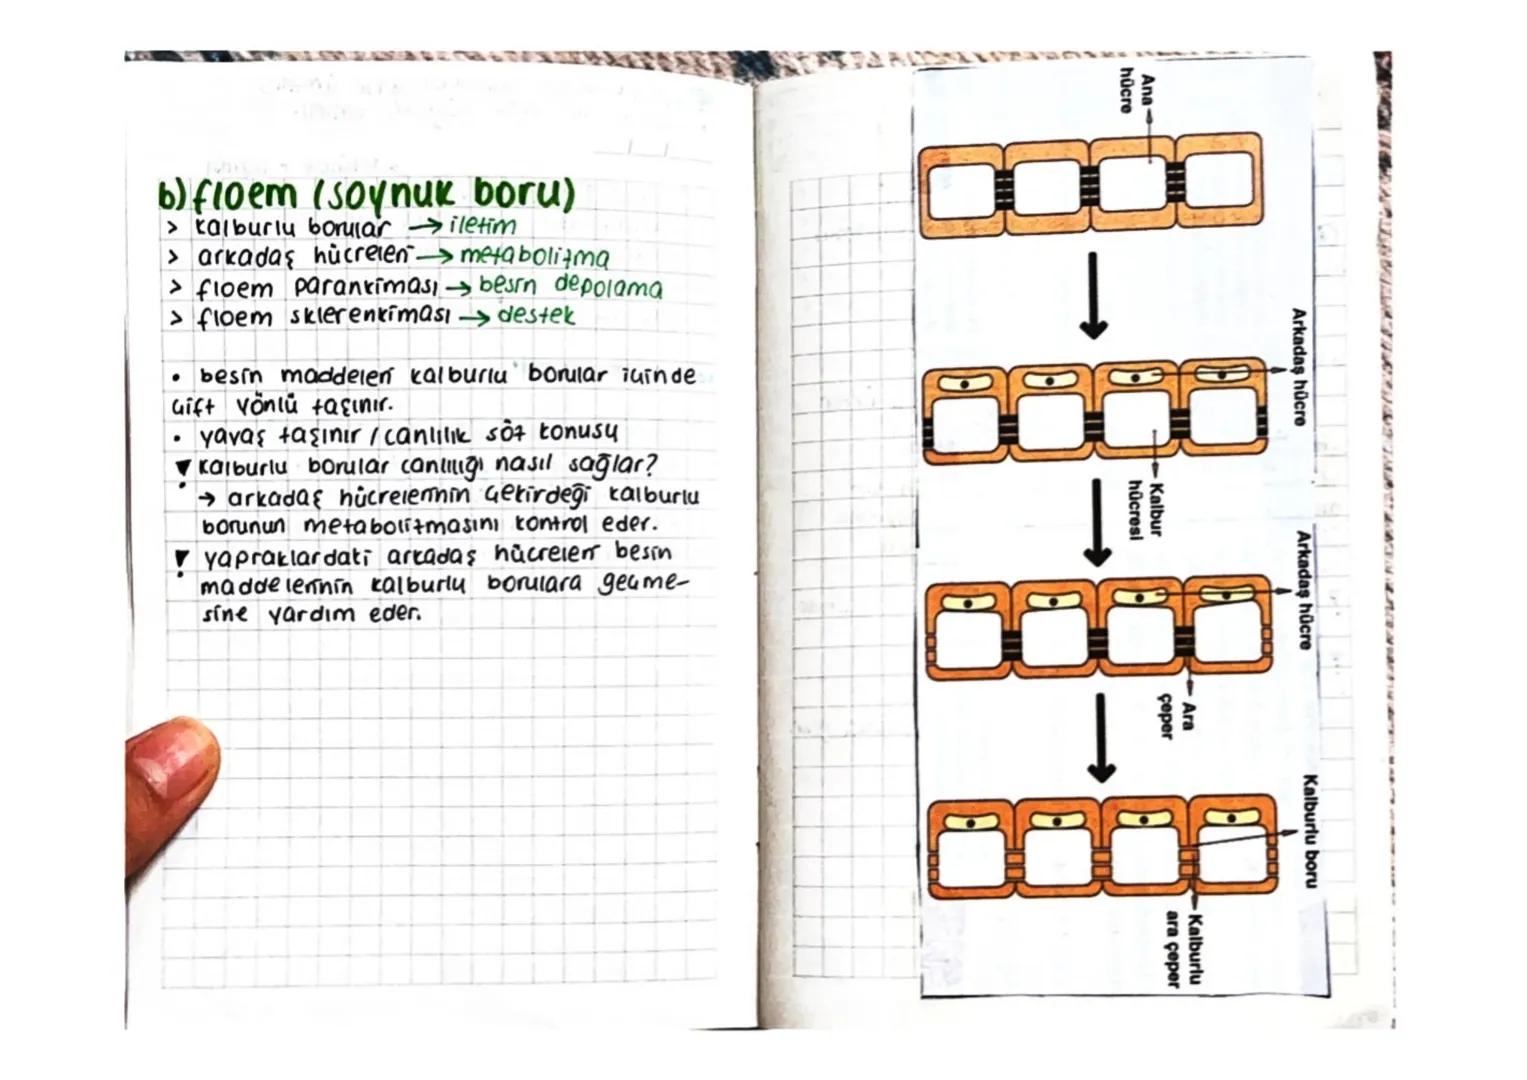 b) floem (soynuk boru)
> kalburlu borular → iletim
> arkadaş hücreleri → metabolizma
> floem parankiması → besin depolama
> floem sklerenkiması → destek
• besin maddeleri kalburlu borular içinde
çift yönlü taşınır.
• yavaş taşınır / canlılık söz konusu
kalburlu borular canlılığı nasıl sağlar?
→ arkadaş hücrelerinin çekirdeği kalburlu
borunun metabolizmasını kontrol eder.
yapraklardaki arkadaş hücreleri besin
maddelerinin kalburlu borulara geçme-
sine yardım eder.
Ana
hücre
Arkadaş hücre
Kalbur
hücresi
Arkadaş hücre
Ara
çeper
Kalburlu boru
Kalburlu
ara çeper